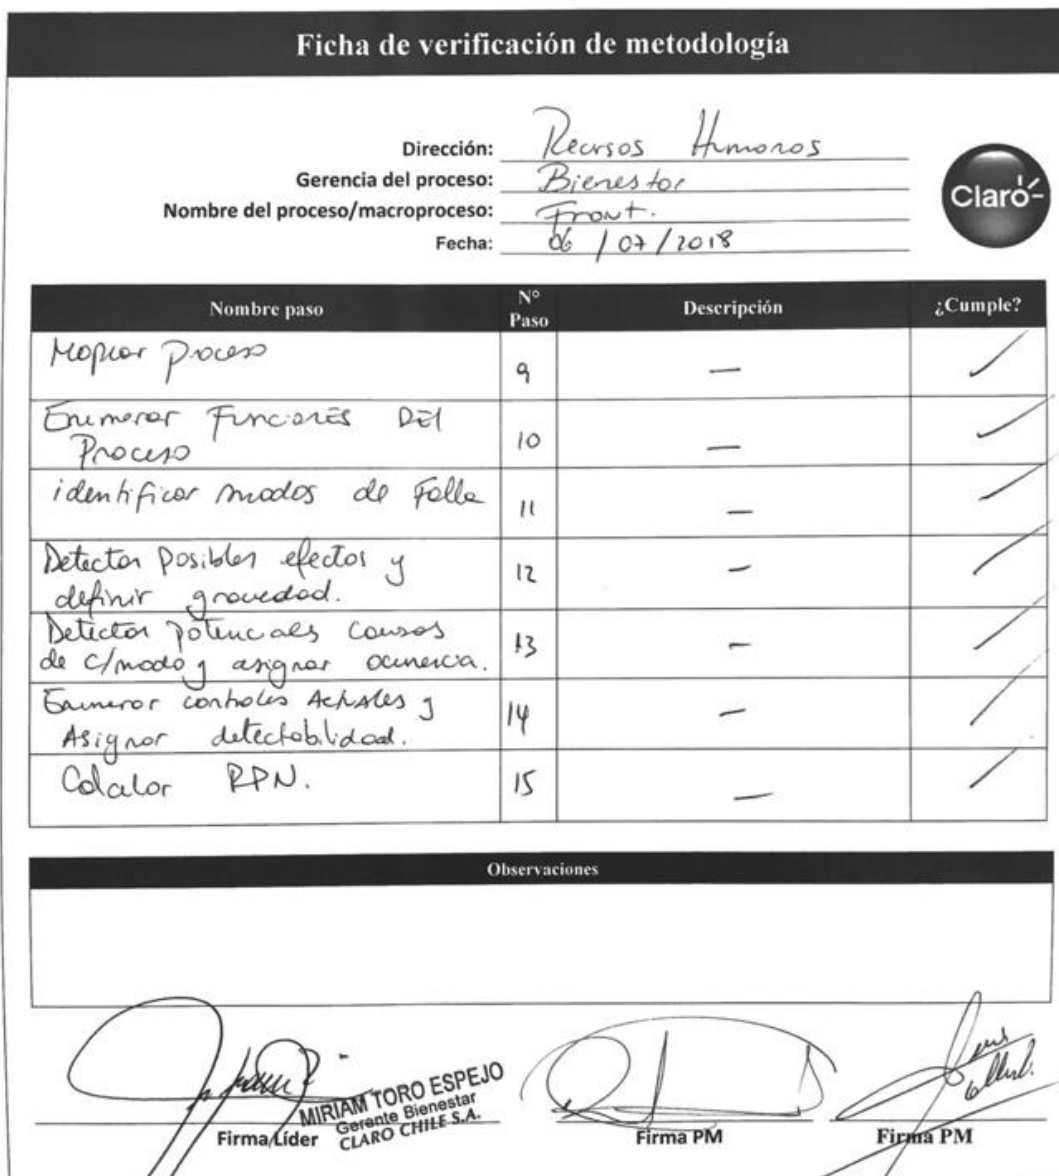 Ficha de verificación de metodología
Dirección: Recursos Humanos
Gerencia del proceso: Bienestar
Nombre del proceso/macroproceso: Front.
Fecha: 06 / 07 / 2018
Claro
Nombre paso N° Paso Descripción ¿Cumple?
Mapear Proceso 9 —
Enumerar Funciones DEl
Proceso 10 —
identificar modos de Falla 11 —
Detectar posibles efectos y
definir gravedad. 12 —
Detectar potenciales causas
de c/modo y asignar ocurrencia. 13 —
Enumerar controles Actuales y
Asignar detectabilidad. 14 —
Calcular RPN. 15 —
Observaciones
MIRIAM TORO ESPEJO
Gerente Bienestar
CLARO CHILE S.A.
Firma Líder Firma PM Firma PM